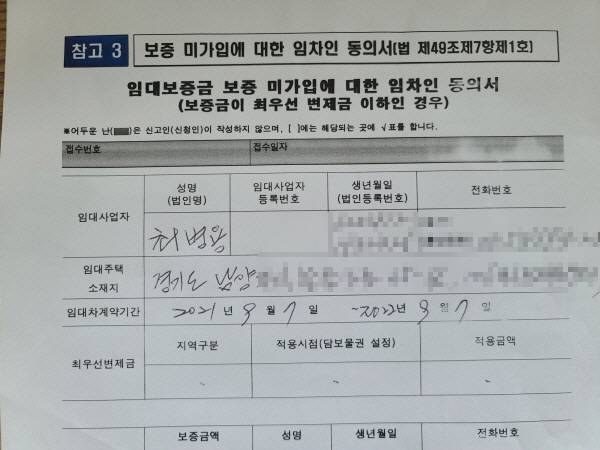 참고 3 보증 미가입에 대한 임차인 동의서(법 제49조제7항제1호)
임대보증금 보증 미가입에 대한 임차인 동의서
(보증금이 최우선 변제금 이하인 경우)
※어두운 난( )은 신고인(신청인)이 작성하지 않으며, [ ]에는 해당되는 곳에 √표를 합니다.
접수번호 접수일자
임대사업자 성명 (법인명) 임대사업자 등록번호 생년월일 (법인등록번호) 전화번호
최병용
임대주택 소재지 경기도 남양
임대차계약기간 2021년 9월 7일 ~2022년 9월 7일
최우선변제금 지역구분 적용시점(담보물권 설정) 적용금액
보증금액 성명 생년월일 전화번호